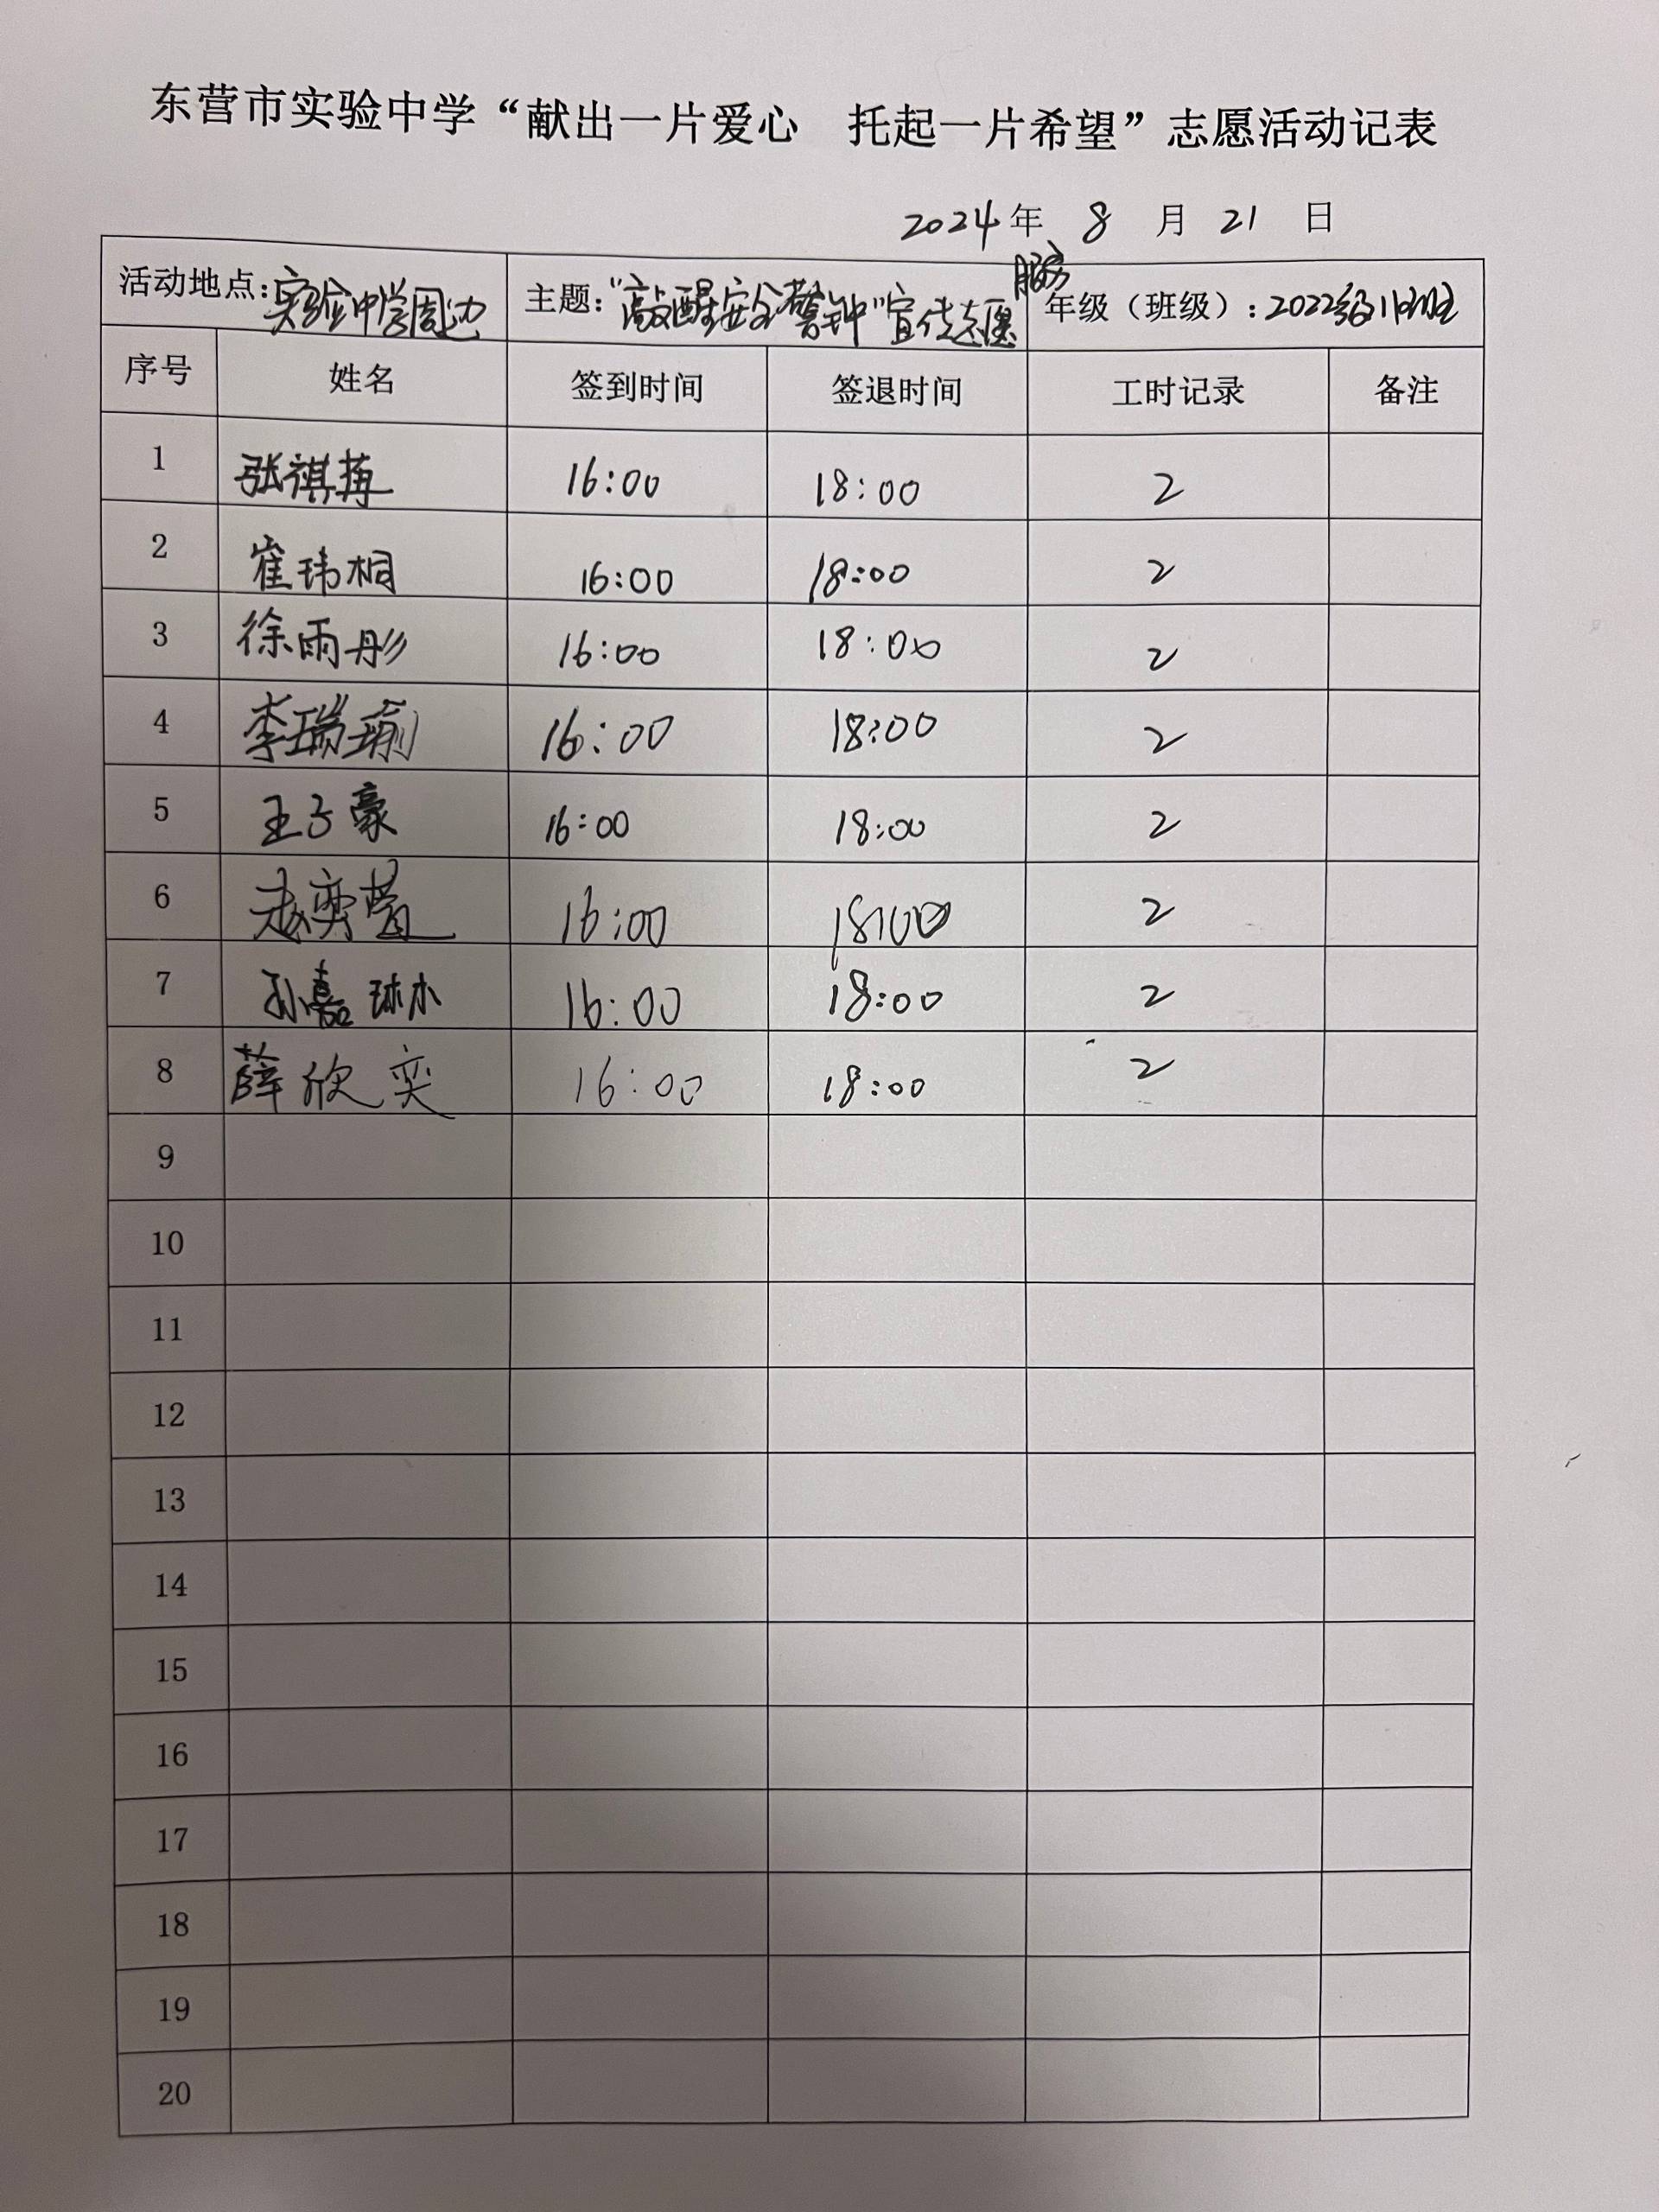 东营市实验中学“献出一片爱心 托起一片希望”志愿活动记表
2024年 8 月 21 日
活动地点:实验中学周边 主题:“敲醒安全警钟”宣传志愿服务 年级（班级）:2022级11班
序号 姓名 签到时间 签退时间 工时记录 备注
1 张祺苒 16:00 18:00 2
2 崔玮桐 16:00 18:00 2
3 徐雨彤 16:00 18:00 2
4 李瑞瑜 16:00 18:00 2
5 王子豪 16:00 18:00 2
6 赵奕萱 16:00 18:00 2
7 孙嘉琳 16:00 18:00 2
8 薛欣奕 16:00 18:00 2
9
10
11
12
13
14
15
16
17
18
19
20